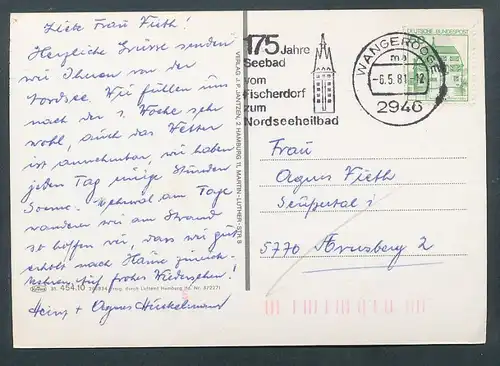 Liebe Frau Fieth!
Herzliche Grüsse senden
wir Ihnen von der
Nordsee. Wir fühlen uns
nach der 1. Woche sehr
wohl, auch das Wetter
ist annehmbar, wir haben
jeden Tag einige Stunden
Sonne. am Tage
wandern wir am Strand
so hoffen wir, dass wir gut
erholt nach Hause zurück-
kehren. Auf frohes Wiedersehen!
Heinz + Agnes
30. 454.10
VERLAG J. P. JANTZEN, 2 HAMBURG 11, MARTIN-LUTHER-STR. 8
175 Jahre
Seebad
vom
Fischerdorf
zum
Nordseeheilbad
WANGEROOGE
-6.5.81-12
2946
DEUTSCHE BUNDESPOST
Frau
Agnes Fieth
5770 Arnsberg 2